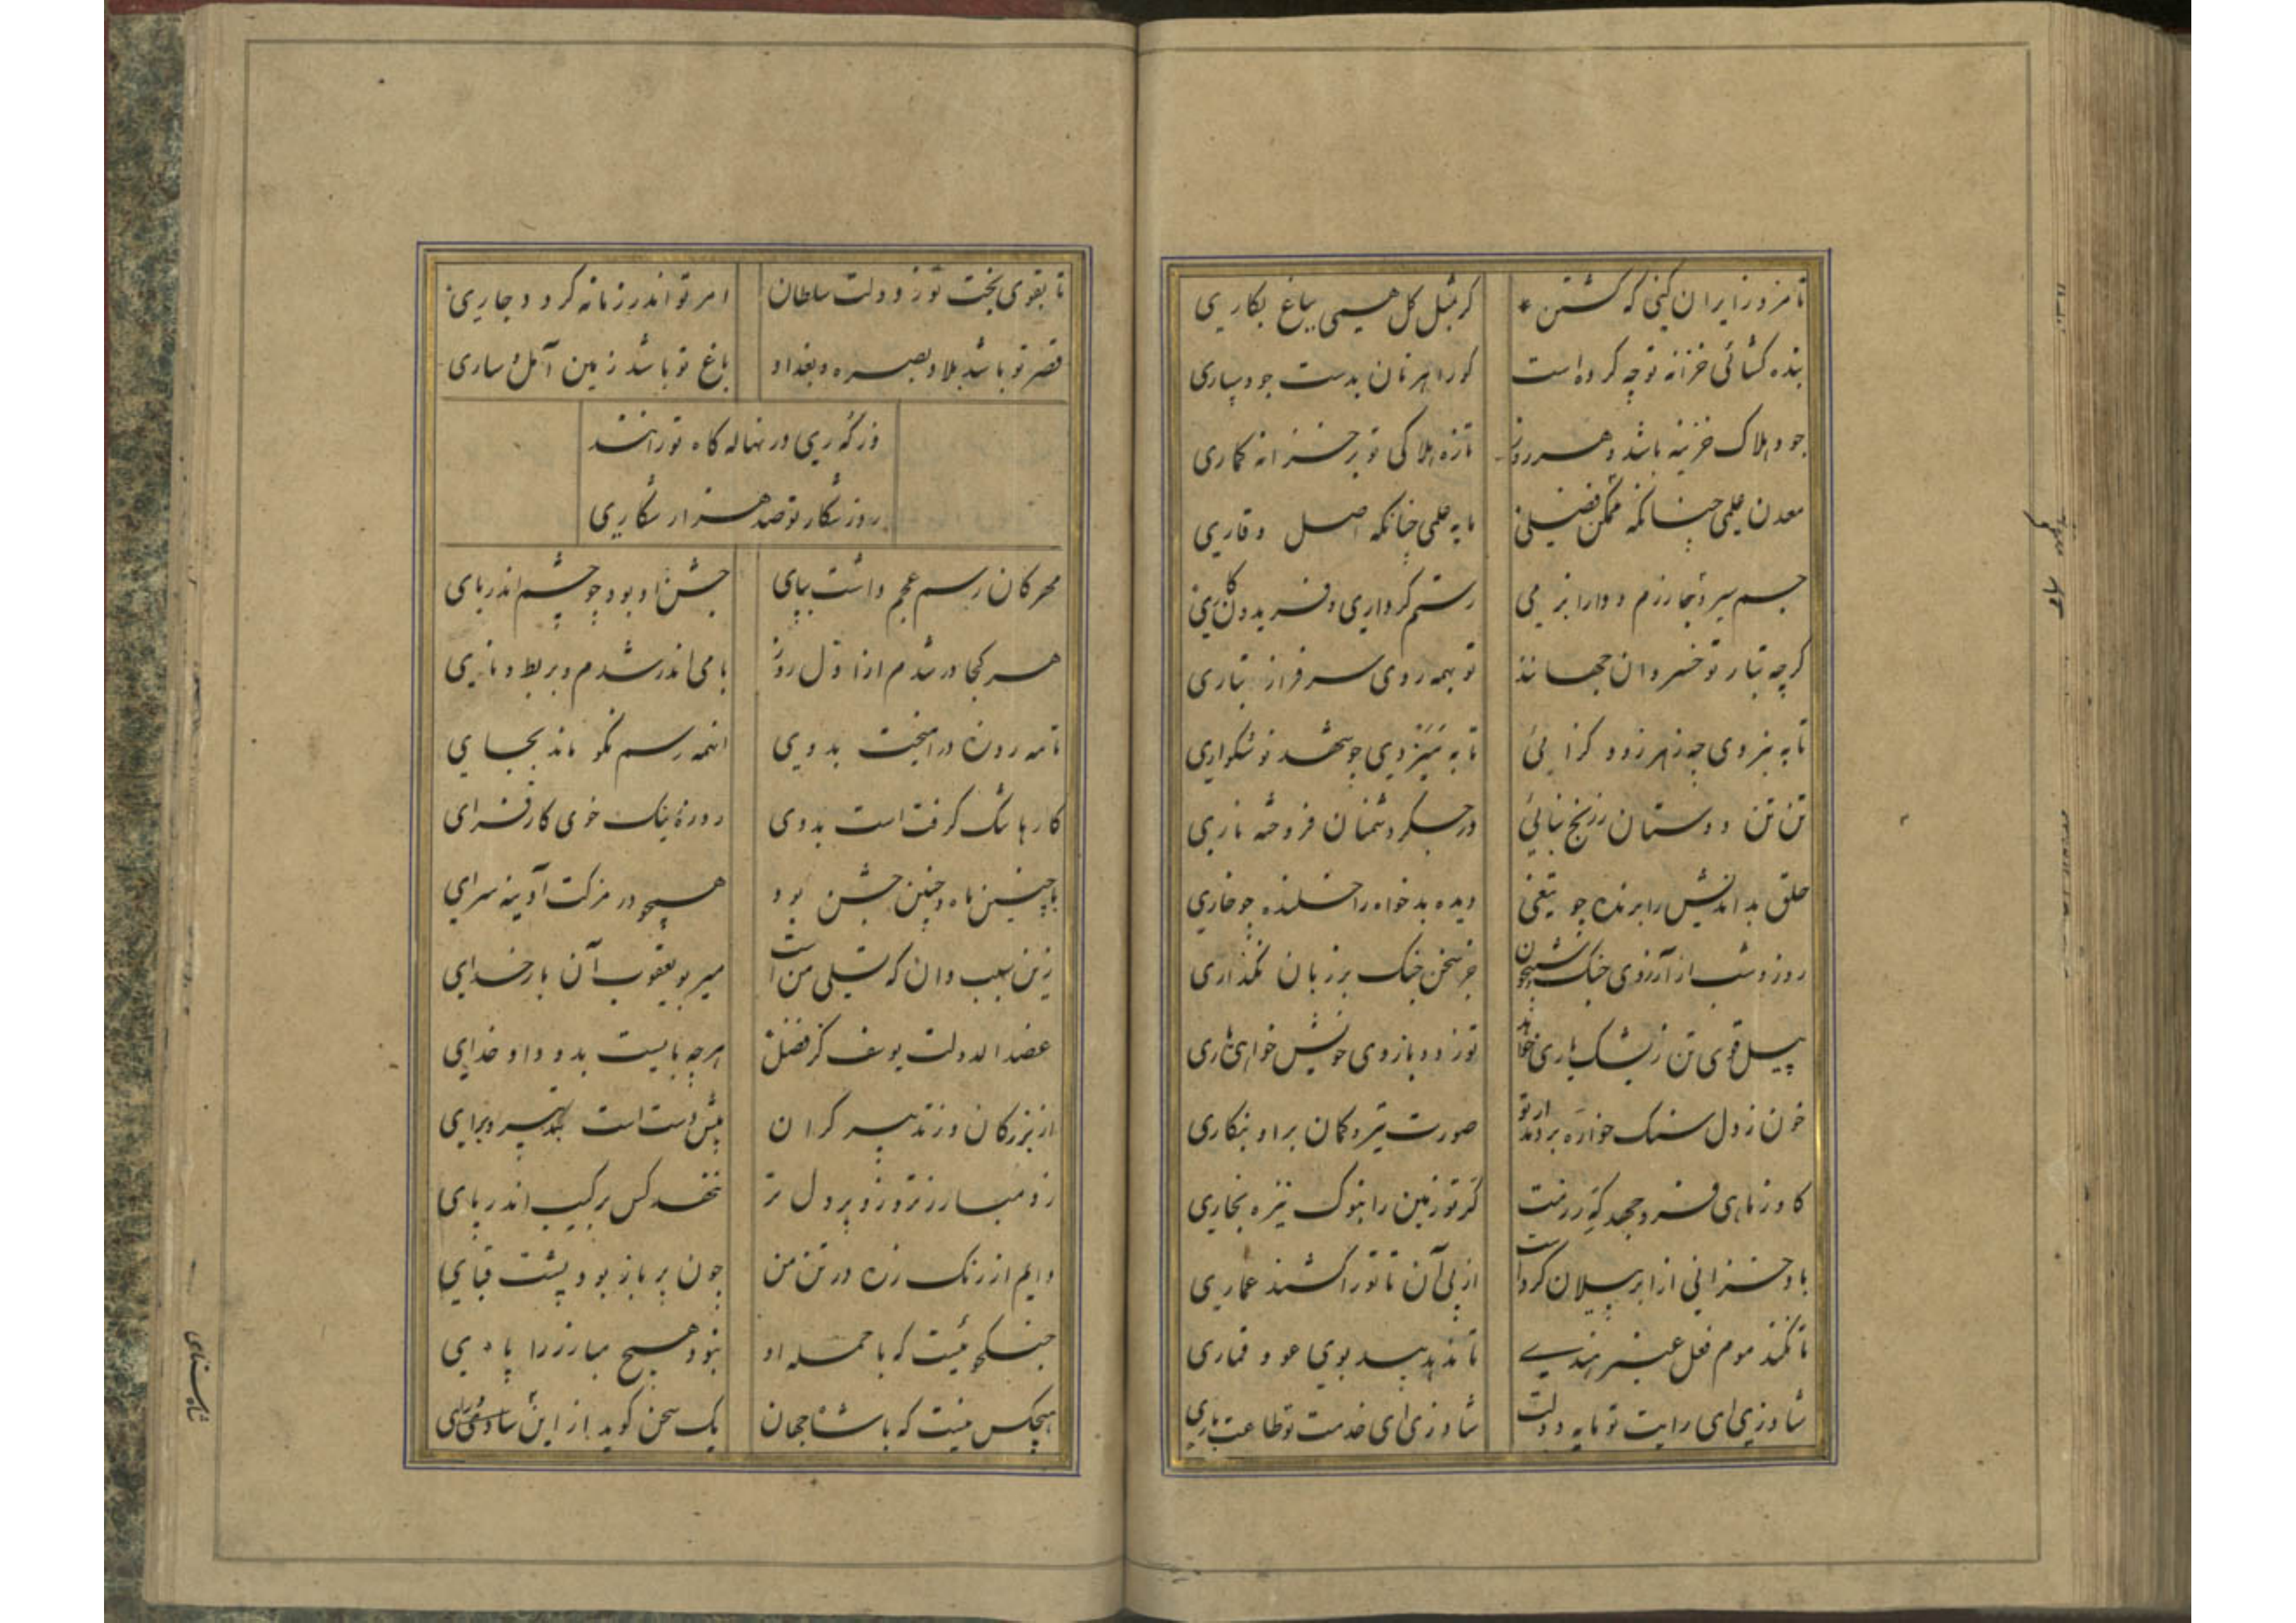 تا مزد و زایران کنی که کشتن * کر مثل کل همیی بباغ بکاریی
بنده کشائی خزانه توچه کرده است کورا بهر نان بدست جود سپاری
جود هلاک خزینه باشد و هر روز تازه هلاکی تو بر خزانه کماری
معدن علمی چنانکه ممکن فضلی مایه حلمی چنانکه اصل وقاری
جسم سیر و نجا رزم و دارا بزمی رستم کرداری و فریدون
کرچه تبار تو خسروان جهانند تو بهمه روی سرفراز تباری
تا به نبردی چو زهر زود کزائی تا به نبیذی چو شهد نوشکواری
تن تن دوستان زرنج بنائی در جکر دشمنان فروخته ناری
حلق بداندیش را برنده چو تیغی دیده بدخواه را خلنده چو خاری
روز و شب از آرزوی جنک شبیخون جز سخن جنک بر زبان نکذاری
پیل قوی تن زیشک یاری خواهد تو ز دو بازوی خویش خواهی یاری
خون ز دل سنک خواره بردمد ار تو صورت تیر و کمان بر او بنکاری
کاو ز ماهی فرو جهد که رزمت کر تو زمین را بنوک نیزه بخاری
باد خزانی از ابر پیلان کرد است از پی آن تا تو را کشند عماری
تا نکند موم فعل عنبر هندی تا ندهد بید بوی عود قماری
شاد زی ای رایت تو مایه دولت شاد زی ای خدمت تو طاعت باری
تا بقوی بخت تو ز دولت سلطان امر تو اندر زمانه کردد جاری
قصر تو باشد بلاد بصره و بغداد باغ تو باشد زمین آمل و ساری
ور که ری در نهاله کاه تو رانند
روز شکار تو صد هزار شکاریی
مهرکان رسم عجم داشت بپای جشن او بود چو چشم اندر بای
هر کجا در شدم از اول روز با می اندر شدم و بربط و نای
تا مه روزه در امیخت بدویی اینهمه رسم نکو ماند بجایی
کار ها تنک کرفت است بدوی روزهٔ تنک خوی کارفزای
با چنین ماه چنین جشن بود همچو در مزکت آدینه سرای
زین سبب و ان که تسلی من است میر بو یعقوب آن بار خدای
عضد الدولت یوسف کز فضل هرچه بایست بدو داد خدای
از بزرکان و ز تدبیر کران پیش دست است بتدبیر و برای
زو مبارز تر و زو پر دل تر ننهد کس برکیب اندر پای
دایم از رنک زره در تن من چون پر باز بود پشت قبایی
جنکجو نیست که با حمله او نبود هیچ مبارز را پایی
هیچکس نیست که با شاه جهان یک سخن کوید از این شاه
شاه سنای